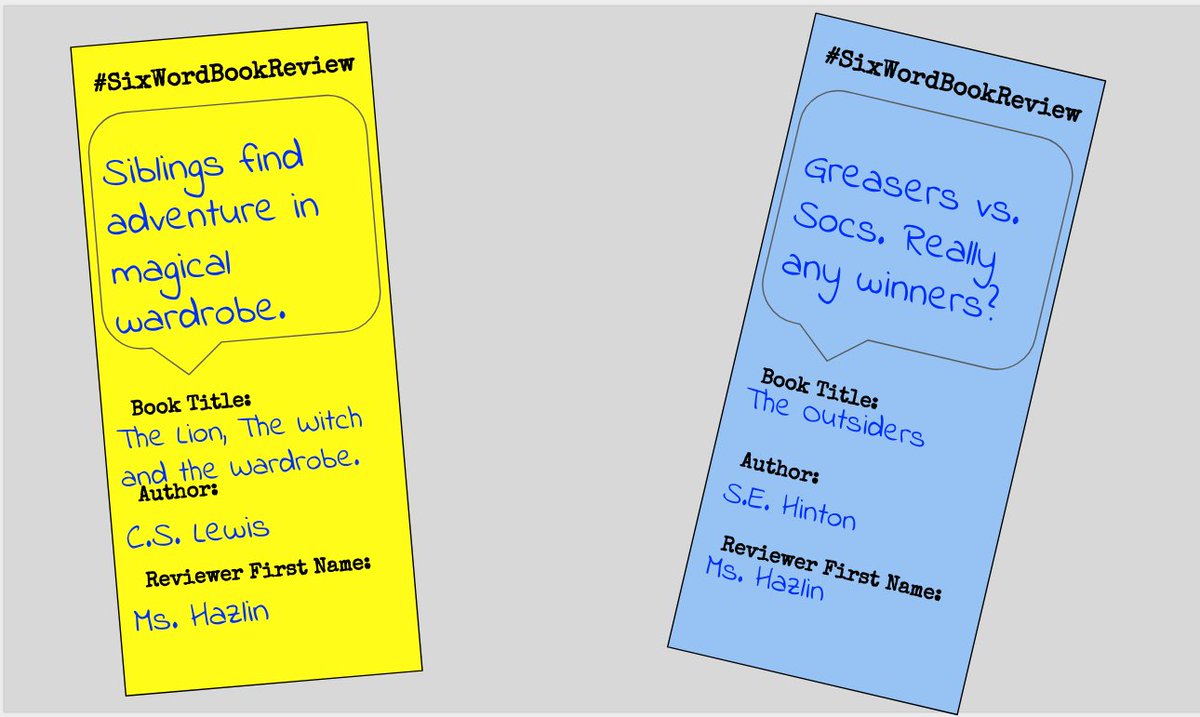 #SixWordBookReview
Siblings find
adventure in
magical
wardrobe.
Book Title:
The Lion, The Witch
and the Wardrobe.
Author:
C.S. Lewis
Reviewer First Name:
Ms. Hazlin
#SixWordBookReview
Greasers vs.
Socs. Really
any winners?
Book Title:
The Outsiders
Author:
S.E. Hinton
Reviewer First Name:
Ms. Hazlin